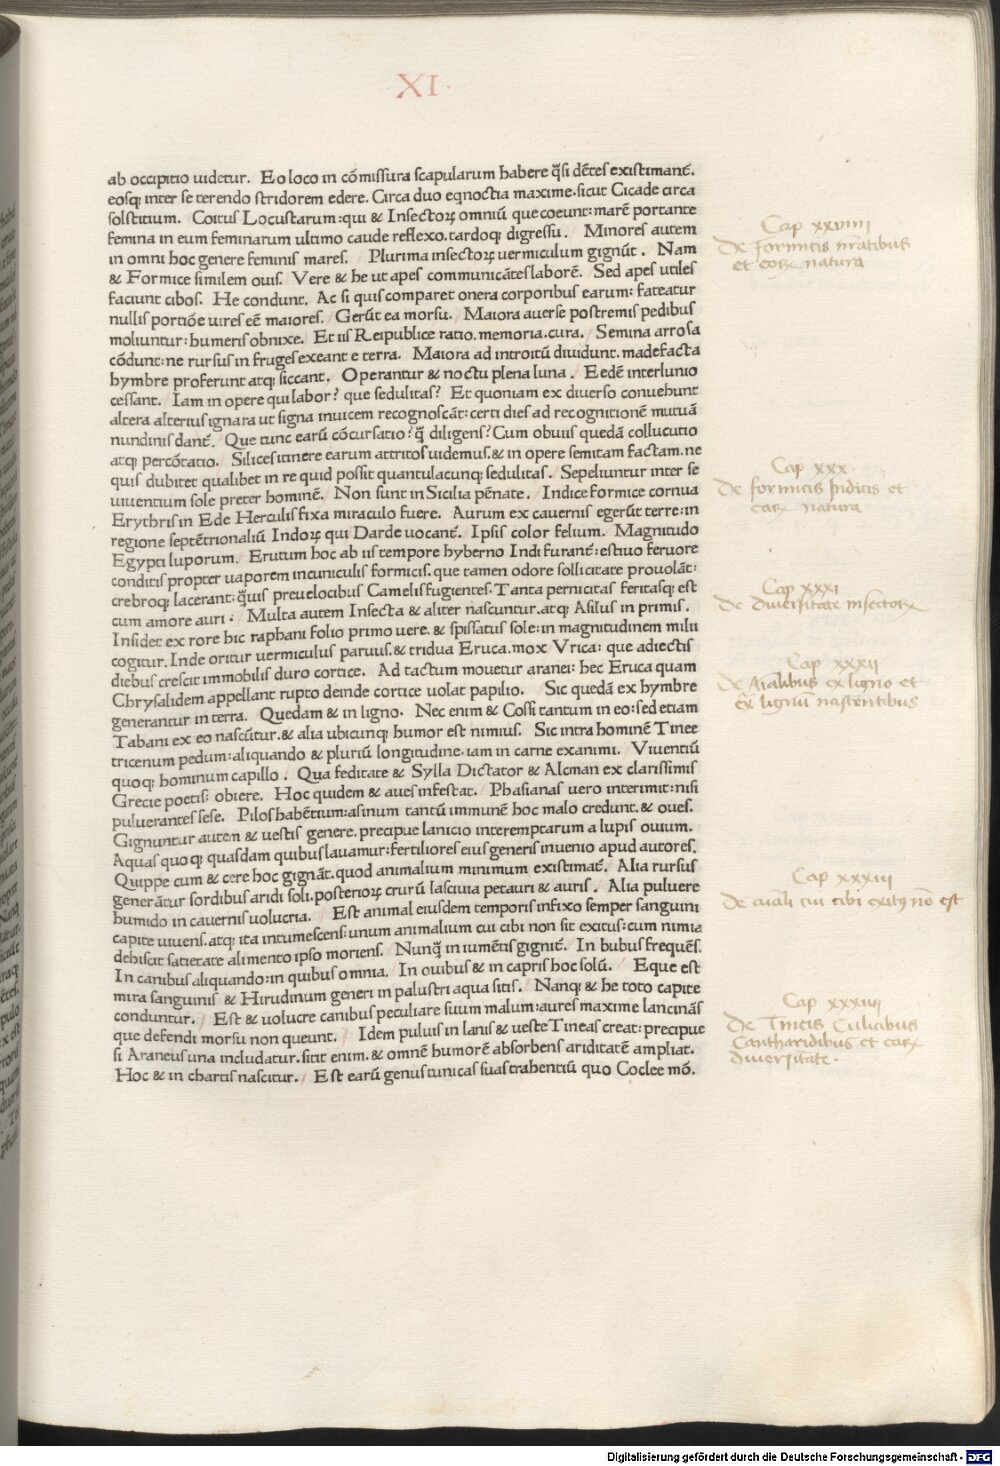 XI.
ab occipitio uidetur. Eo loco in cõmissura scapularum habere q̃si dẽtes existimant̃.
eosq; inter se terendo stridorem edere. Circa duo eqnoctia maxime. sicut Cicade circa
solstitium. Coitus Locustarum: qui & Insectoꝝ omniũ que coeunt: marẽ portante
femina in eum feminarum ultimo caude reflexo. tardoq; digressu. Minores autem
in omni hoc genere feminis mares. Plurima insectoꝝ uermiculum gignũt. Nam
& Formice similem ouis. Vere & he ut apes communicãtes laborẽ. Sed apes utiles
faciunt cibos. He condunt. Ac si quis comparet onera corporibus earum: fateatur
nullis portiõe uires eẽ maiores. Gerũt ea morsu. Maiora auerse postremis pedibus
moliuntur: humeris obnixe. Et iis Reipublice ratio. memoria. cura. Semina arrosa
cõdunt: ne rursus in fruges exeant e terra. Maiora ad introitũ diuidunt. madefacta
hymbre proferunt atq; siccant. Operantur & noctu plena luna. Eedẽ interlunio
cessant. Iam in opere qui labor? que sedulitas? Et quoniam ex diuerso conuehunt
altera alterius ignara ut signa inuicem recognoscãt: certi dies ad recognitionẽ mutuã
nundinis dant̃. Que tunc earũ cõcursatio? q̃ diligens? Cum obuiis quedã collucutio
atq; percõtatio. Silices itinere earum attritos uidemus. & in opere semitam factam. ne
quis dubitet qualibet in re quid possit quantulacunq; sedulitas. Sepeliuntur inter se
uiuentium sole preter hominẽ. Non sunt in Sicilia pẽnate. Indice formice cornua
Erythris in Ede Herculis fixa miraculo fuere. Aurum ex cauernis egerũt terre: in
regione septẽtrionaliũ Indoꝝ qui Darde uocant̃. Ipsis color felium. Magnitudo
Egypti luporum. Erutum hoc ab iis tempore hyberno Indi furant̃: estiuo feruore
conditis propter uaporem in cuniculis formicis. que tamen odore sollicitate prouolãt:
crebroq; lacerant: q̃uis preuelocibus Camelis fugientes. Tanta pernicitas feritasq; est
cum amore auri: Multa autem Insecta & aliter nascuntur. atq; Asilus in primis.
Insidet ex rore hic raphani folio primo uere. & spissatus sole: in magnitudinem milii
cogitur. Inde oritur uermiculus paruus. & tridua Eruca. mox Vrica: que adiectis
diebus crescit immobilis duro cortice. Ad tactum mouetur aranei: hec Eruca quam
Chrysalidem appellant rupto deinde cortice uolat papilio. Sic quedã ex hymbre
generantur in terra. Quedam & in ligno. Nec enim & Cossi tantum in eo: sed etiam
Tabani ex eo nascũtur. & alia ubicunq; humor est nimius. Sic intra hominẽ Tinee
tricenum pedum: aliquando & pluriũ longitudine. iam in carne exanimi. Viuentiũ
quoq; hominum capillo. Qua feditate & Sylla Dictator & Alcman ex clarissimis
Grecie poetis: obiere. Hoc quidem & aues infestat. Phasianas uero interimit: nisi
puluerantes sese. Pilos habẽtium: asinum tantũ immunẽ hoc malo credunt. & oues.
Gignuntur autem & uestis genere. precipue lanicio interemptarum a lupis ouium.
Aquas quoq; quasdam quibus lauamur: fertiliores eius generis inuenio apud autores.
Quippe cum & cere hoc gignãt. quod animalium minimum existimat̃. Alia rursus
generãtur sordibus aridi soli. posterioꝝ crurũ lasciuia petauri & auris. Alia puluere
humido in cauernis uolucria. Est animal eiusdem temporis infixo semper sanguini
capite uiuens. atq; ita intumescens: unum animalium cui cibi non sit exitus: cum nimia
dehiscit satietate alimento ipso moriens. Nunq̃ in iumẽtis gignit̃. In bubus frequẽs.
In canibus aliquando: in quibus omnia. In ouibus & in capris hoc solũ. Eque est
mira sanguinis & Hirudinum generi in palustri aqua sitis. Nanq; & he toto capite
conduntur. Est & uolucre canibus peculiare suum malum: aures maxime lancinãs
que defendi morsu non queunt. Idem puluis in lanis & ueste Tineas creat: precipue
si Araneus una includatur. sitit enim. & omnẽ humorẽ absorbens ariditatẽ ampliat.
Hoc & in chartis nascitur. Est earũ genus tunicas suas trahentiũ quo Coclee mõ.
Cap xxviiii
De formicis nr̃atibus
et eoꝝ natura
Cap xxx.
De formicis Indicis et
eaꝝ natura
Cap xxxi
De diuersitate insectoꝝ
Cap xxxii
De aĩalibus ex ligno et
ex lignũ nascentibus
Cap xxxiii
De aĩali cui cibi exitꝰ nõ est
Cap xxxiiii
De Tineis Culicibus
Cantharidibus et eaꝝ
diuersitate.
Digitalisierung gefördert durch die Deutsche Forschungsgemeinschaft - DFG